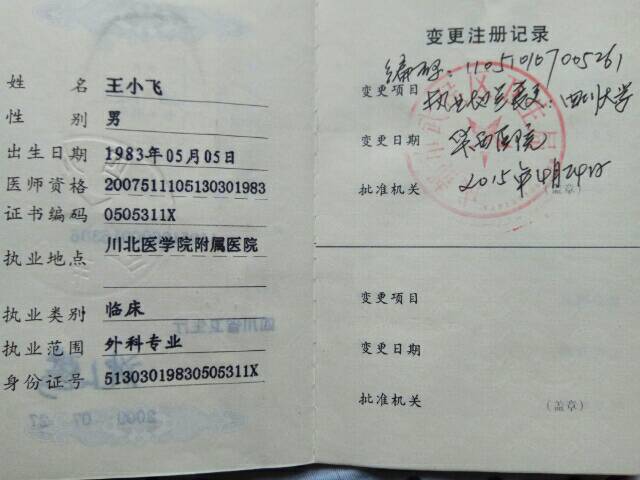 姓 名 王小飞
性 别 男
出生日期 1983年05月05日
医师资格 200751110513030 1983
证书编码 0505311X
执业地点 川北医学院附属医院
执业类别 临床
执业范围 外科专业
身份证号 51303019830505311X
变更注册记录
编码:110510107005261
变更项目 执业地点变更:四川大学
变更日期 华西医院
批准机关 2015年4月24日
(盖章)
变更项目
变更日期
批准机关
(盖章)